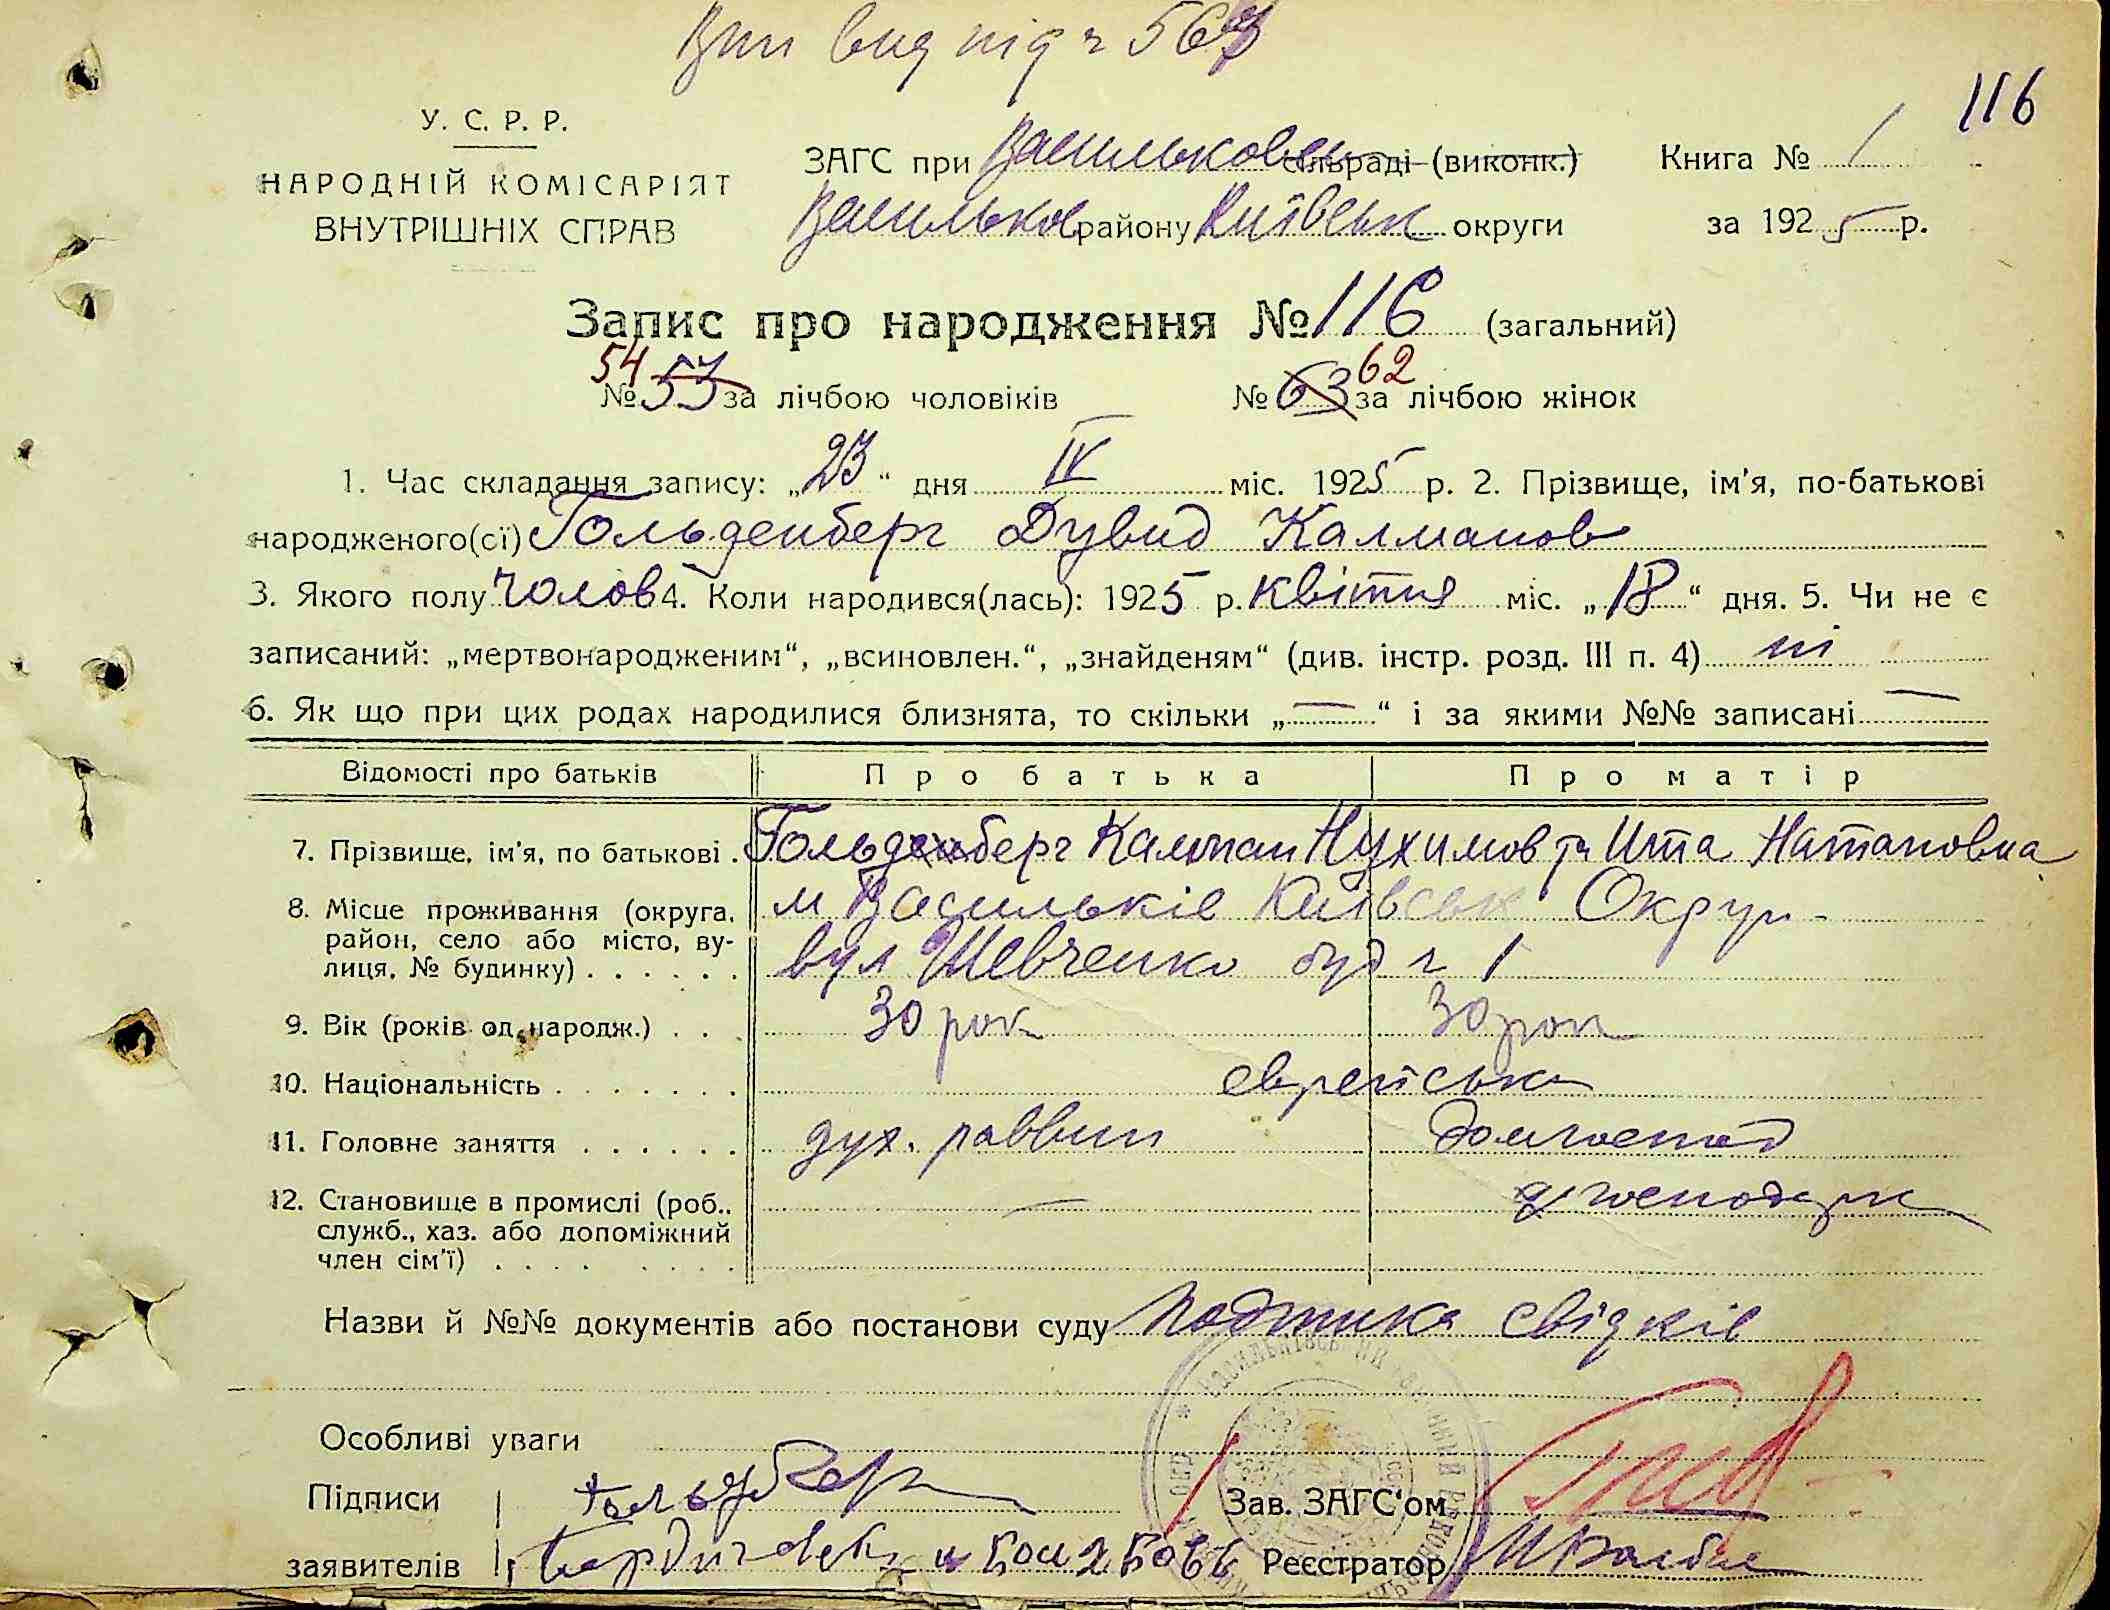 Вип вид під ч 567
116
У. С. Р. Р.
НАРОДНІЙ КОМІСАРІЯТ
ВНУТРІШНІХ СПРАВ
ЗАГС при Васильковск сільраді (виконк.) Книга № 1
Васильков району Київськ округи за 1925 р.
Запис про народження № 116 (загальний)
54 62
№ 53 за лічбою чоловіків № 63 за лічбою жінок
1. Час складання запису: „23“ дня IV міс. 1925 р. 2. Прізвище, ім'я, по-батькові
народженого(сї) Гольденберг Дувид Калманов
3. Якого полу чолов 4. Коли народився(лась): 1925 р. Квітня міс. „18“ дня. 5. Чи не є
записаний: „мертвонародженим“, „всиновлен.“, „знайденям“ (див. інстр. розд. III п. 4) ні
6. Як що при цих родах народилися близнята, то скільки „—“ і за якими №№ записані —
Відомості про батьків Про батька Про матір
7. Прізвище, ім'я, по батькові . Гольденберг Калман Нухимов та Ита Натановна
8. Місце проживання (округа, м Васильків Київськ Округи
район, село або місто, ву-
лиця, № будинку) . . . . . . вул Шевченко буд ч 1
9. Вік (років од народж.) . . 30 рок 30 рок
10. Національність . . . . . . . єврейська
11. Головне заняття . . . . . . дух. раввин домогоспод
12. Становище в промислі (роб., — господарк
служб., хаз. або допоміжний
член сім'ї) . . . . . . . .
Назви й №№ документів або постанови суду подписка свідків
Особливі уваги
Підписи Зав. ЗАГС'ом
заявителів Реєстратор